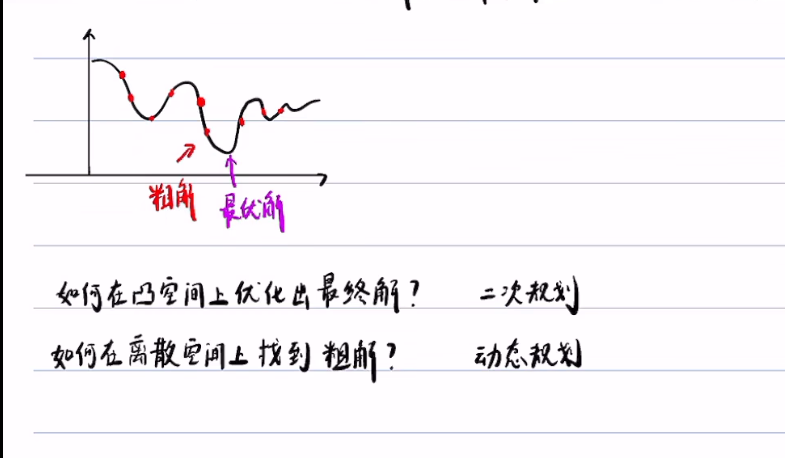 粗解
最优解
如何在凸空间上优化出最终解? 二次规划
如何在离散空间上找到粗解? 动态规划